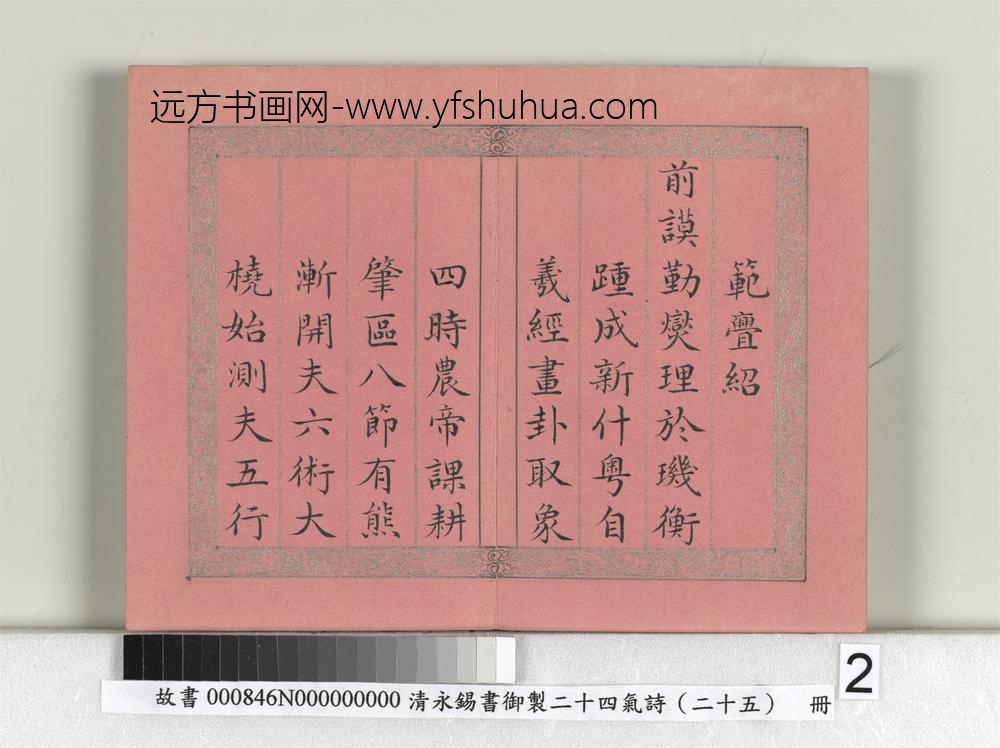 远方书画网-www.yfshuhua.com
範亹紹
前謨勤爕理於璣衡
踵成新什粵自
羲經畫卦取象
四時農帝課耕
肇區八節有熊
漸開夫六術大
橈始測夫五行
2
故書 000846N000000000 清永錫書御製二十四氣詩（二十五） 冊